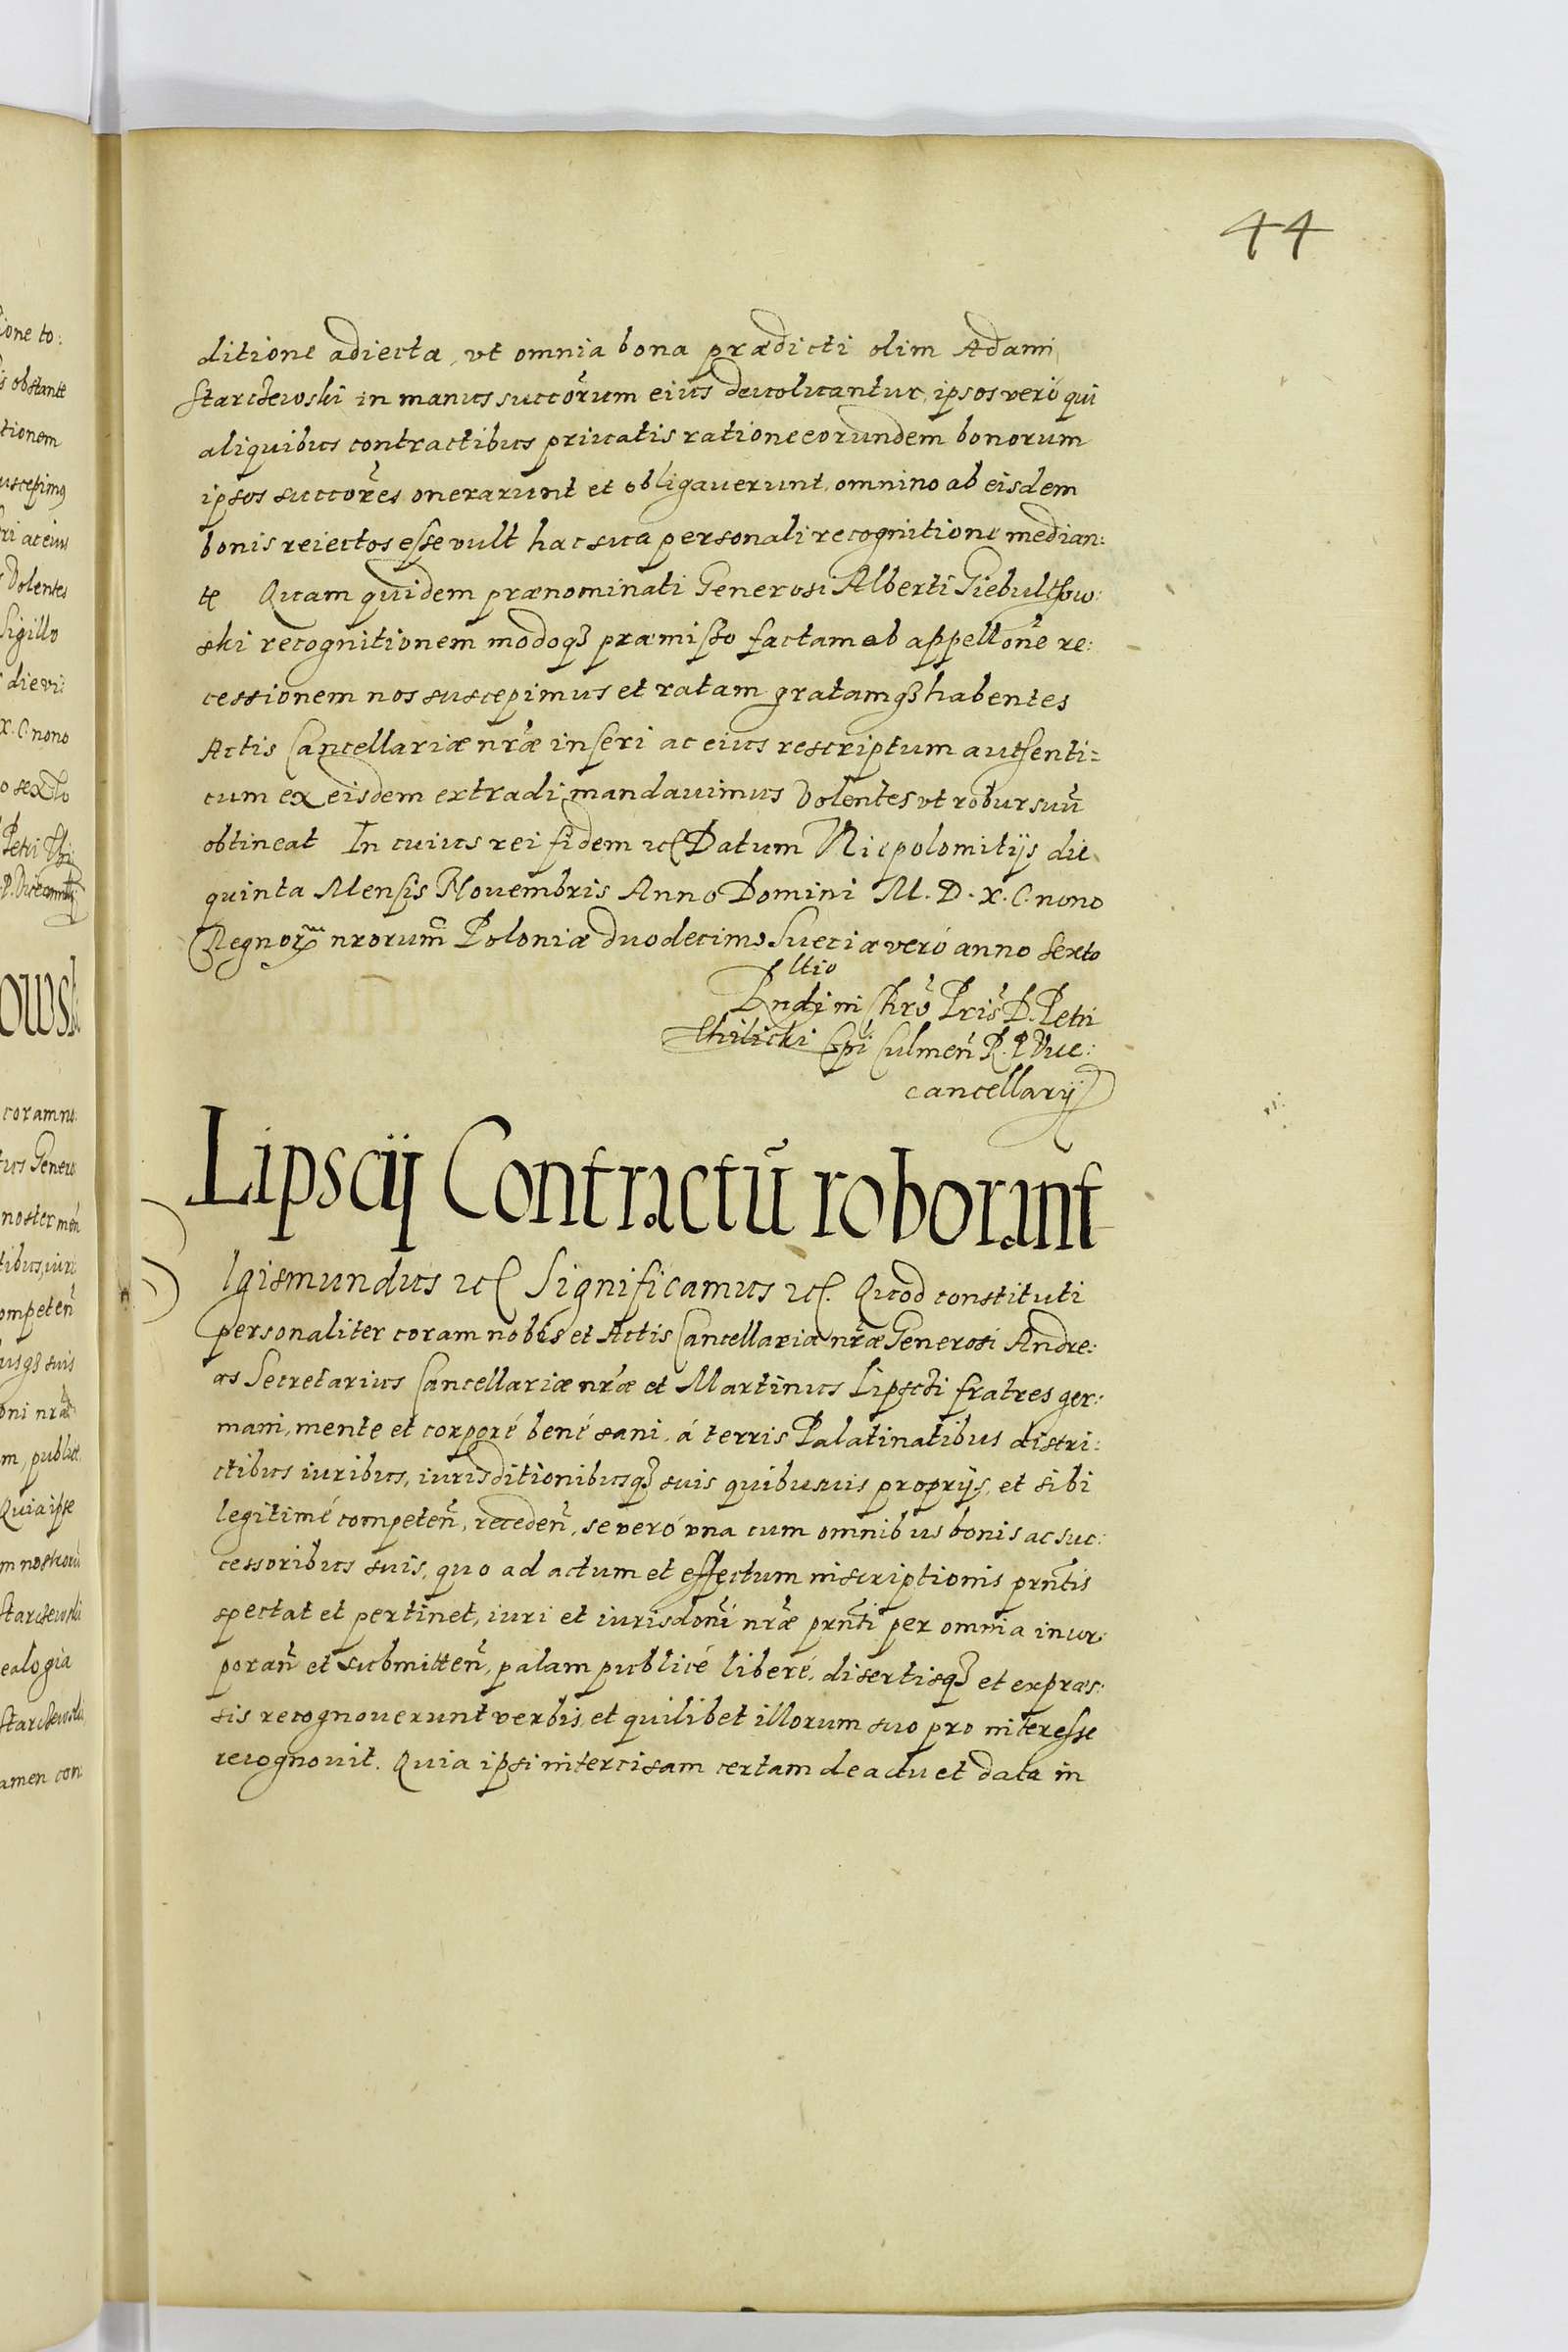 44
ditione adiecta, vt omnia bona prædicti olim Adami
Starchewski in manus succõrum eius deuoluantur, ipsos veró qui
aliquibus contractibus priuatis ratione eorundem bonorum
ipsos succores onerarunt et obligauerunt, omnino ab eisdem
bonis reiectos esse vult hac sua personali recognitione median:
te Quam quidem prænominati Generosi Alberti Giebulthow:
ski recognitionem modoq3 præmisso factam ab appellone re:
cessionem nos suscepimus et ratam gratamq3 habentes
Actis Cancellariæ nræ inseri ac eius rescriptum authenti=
cum ex eisdem extradi mandauimus Volentes vt robur suũ
obtineat In cuius rei fidem etc Datum Niepolomitijs die
quinta Mensis Nouembris Anno Domini M. D. X. C. nono
Regnorum nrorum Poloniæ duodecimo Sueciæ veró anno Sexto
Rltio
Rndi in Chro Pris D. Petri
Thilicki Epi Culmeñ R. P. Vice:
cancellarij
Lipscij Contractũ roborant
Igismundus etc Significamus etc. Quod constituti
personaliter coram nobis et Actis Cancellaria nræ Generosi Andre:
as Secretarius Cancellariæ nræ et Martinus Lipscki fratres ger:
mani, mente et corporé bené sani, á terris Palatinatibus distri:
ctibus iuribus, iurisditionibusq3 suis quibusuis proprijs, et sibi
legitimé competeñ, recedeñ, se veró vna cum omnibus bonis ac suc:
cessoribus suis, quo ad actum et effectum inscriptionis prñtis
spectat et pertinet, iuri et iurisdoni nræ prñti per omnia incor:
porañ et submitteñ, palam publicé liberé, disertisq3 et expræs:
sis recognouerunt verbis, et quilibet illorum suo pro interesse
recognouit. Quia ipsi intercisam certam de actu et data in